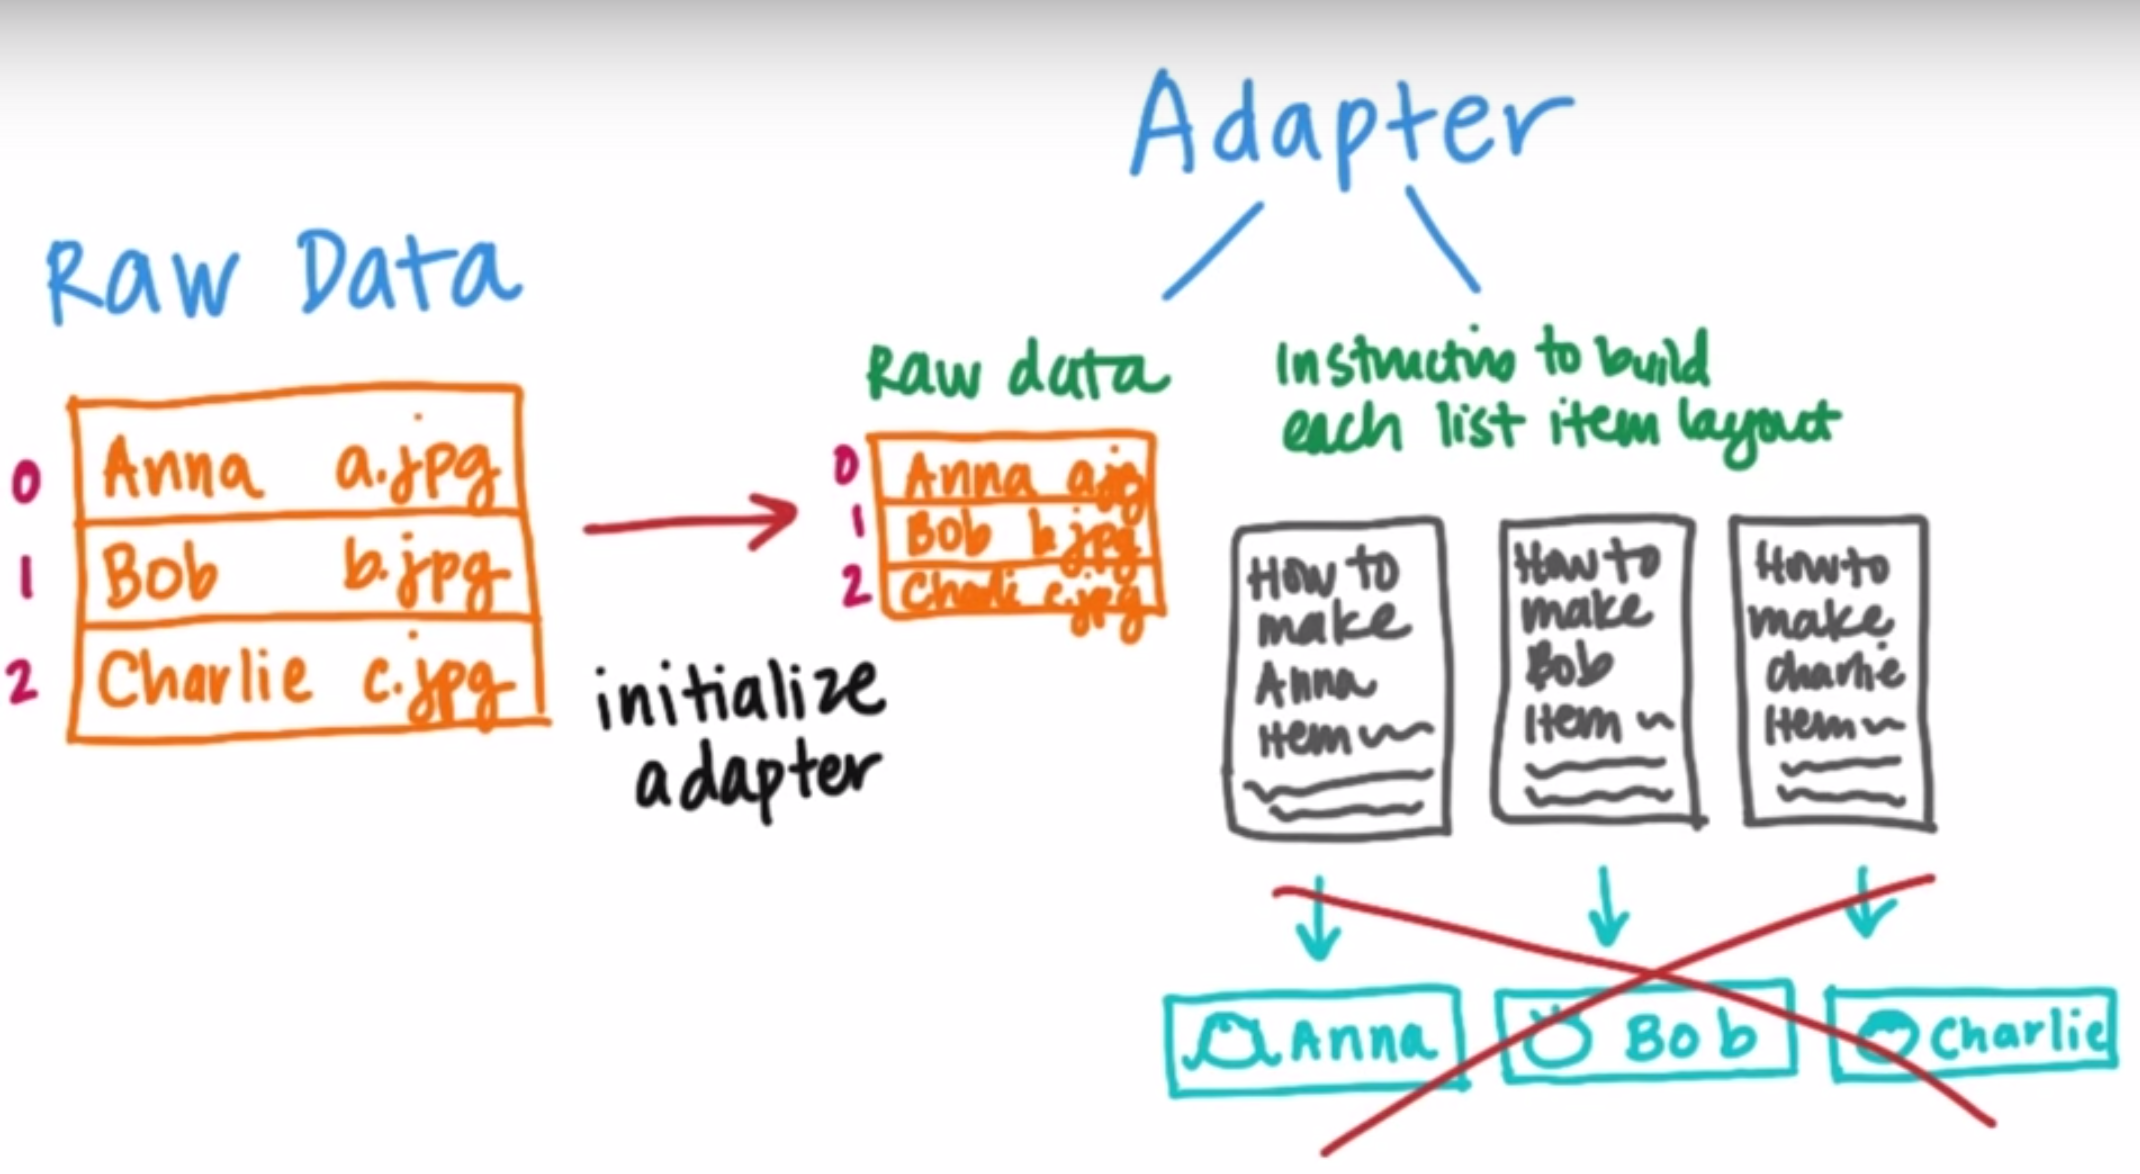 Adapter
Raw Data
0 Anna a.jpg
1 Bob b.jpg
2 Charlie c.jpg
initialize
adapter
Raw data
0 Anna a.jpg
1 Bob b.jpg
2 Charlie c.jpg
Instructins to build
each list item layout
How to
make
Anna
item
How to
make
Bob
item
How to
make
charlie
item
Anna
Bob
Charlie